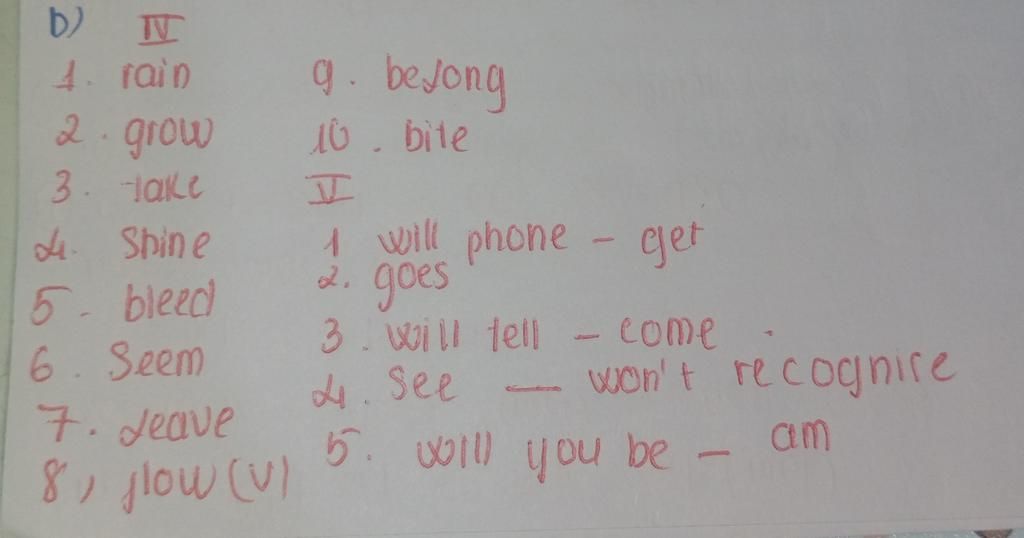 b) IV
1. rain
2. grow
3. take
4. Shine
5. bleed
6. Seem
7. leave
8, flow (v)
9. belong
10. bite
V
1 will phone - get
2. goes
3. will tell - come
4. see - won't recognise
5. will you be - am